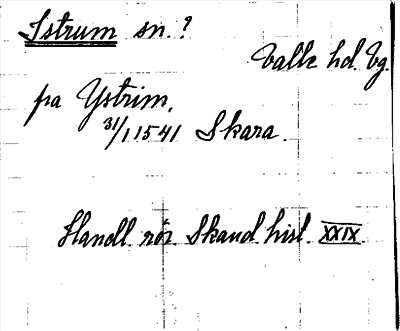 Istrum sn.?
Valle hd. Vg.
pa Ystrim,
31/1 1541 Skara.
Handl. rör. Skand. hist. XXIX.